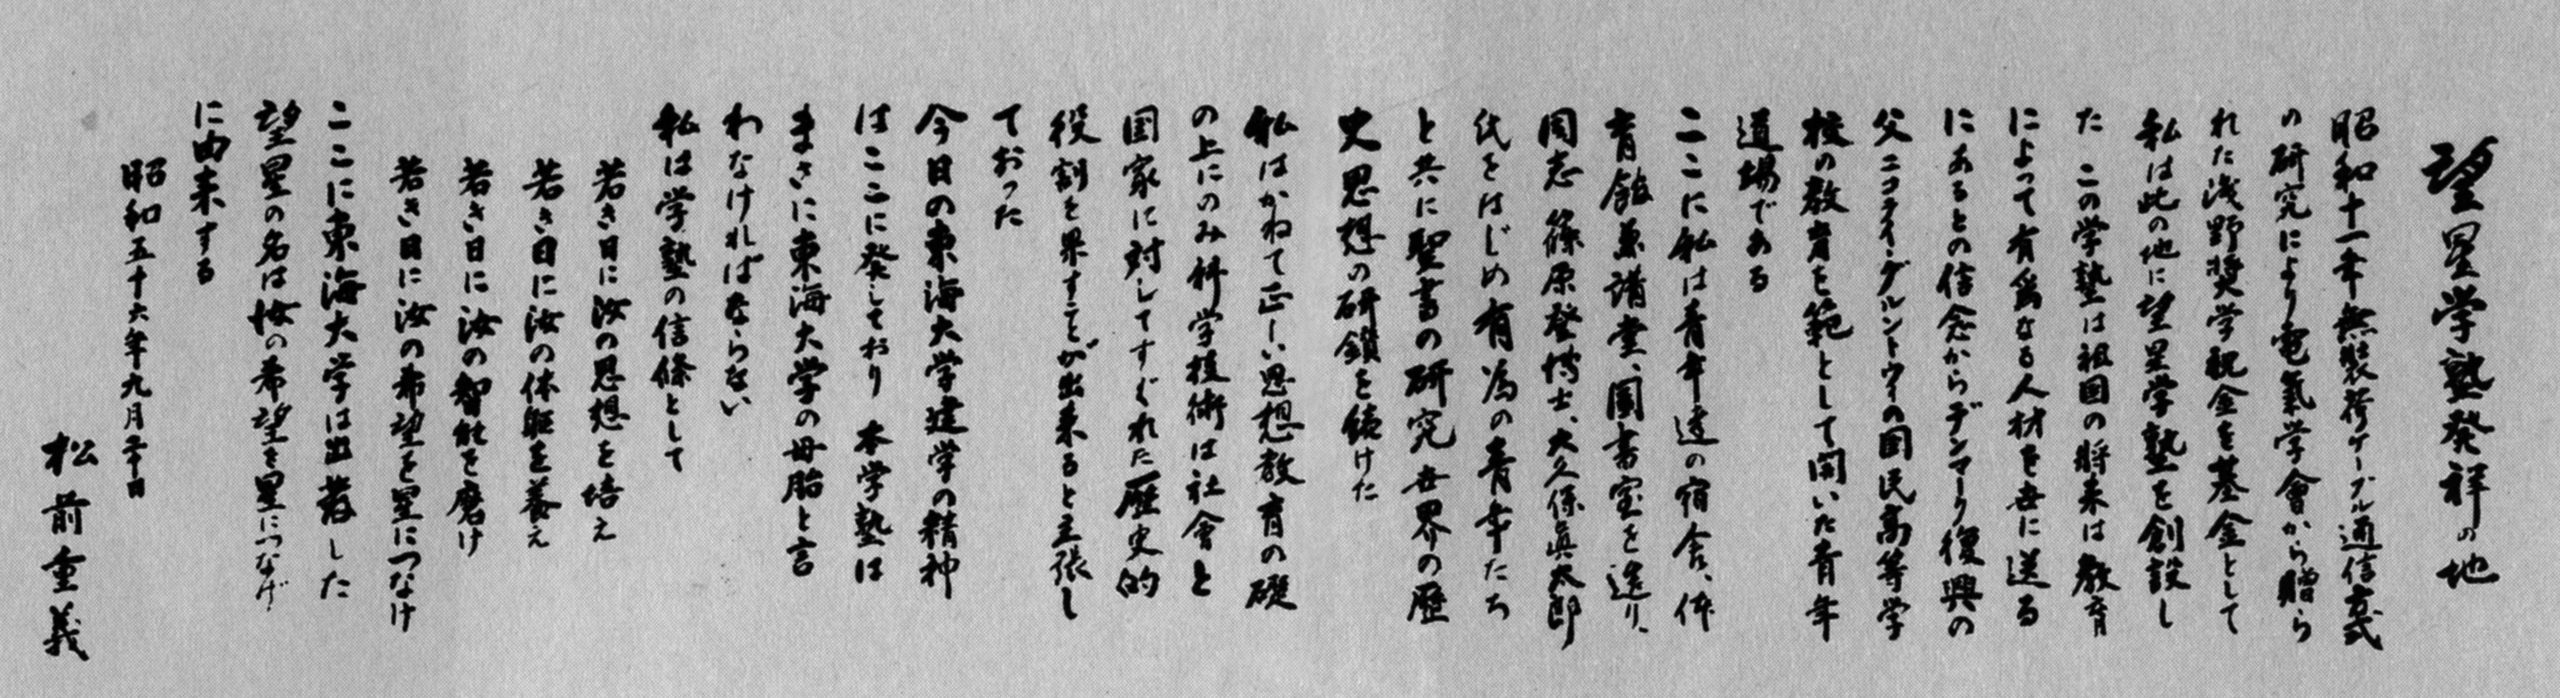 望星学塾発祥の地
昭和十一年無装荷ケーブル通信方式
の研究により電氣学會から贈ら
れた浅野奨学祝金を基金として
私は此の地に望星学塾を創設し
た この学塾は祖国の将来は教育
によって有為なる人材を世に送る
にあるとの信念からデンマーク復興の
父ニコライ・グルントウィの国民高等学
校の教育を範として開いた青年
道場である
ここに私は青年達の宿舎、体
育館兼講堂、圖書室を造り、
同志 篠原登博士、大久保眞太郎
氏をはじめ有為の青年たち
と共に聖書の研究世界の歴
史思想の研鑽を続けた
私はかねて正しい思想教育の礎
の上にのみ科学技術は社會と
国家に対してすぐれた歴史的
役割を果すことが出来ると主張し
ておった
今日の東海大学建学の精神
はここに発しており 本学塾は
まさに東海大学の母胎と言
わなければならない
私は学塾の信條として
若き日に汝の思想を培え
若き日に汝の体躯を養え
若き日に汝の智能を磨け
若き日に汝の希望を星につなげ
ここに東海大学は出発した
望星の名は汝の希望を星につなげ
に由来する
昭和五十六年九月二十日
松前重義